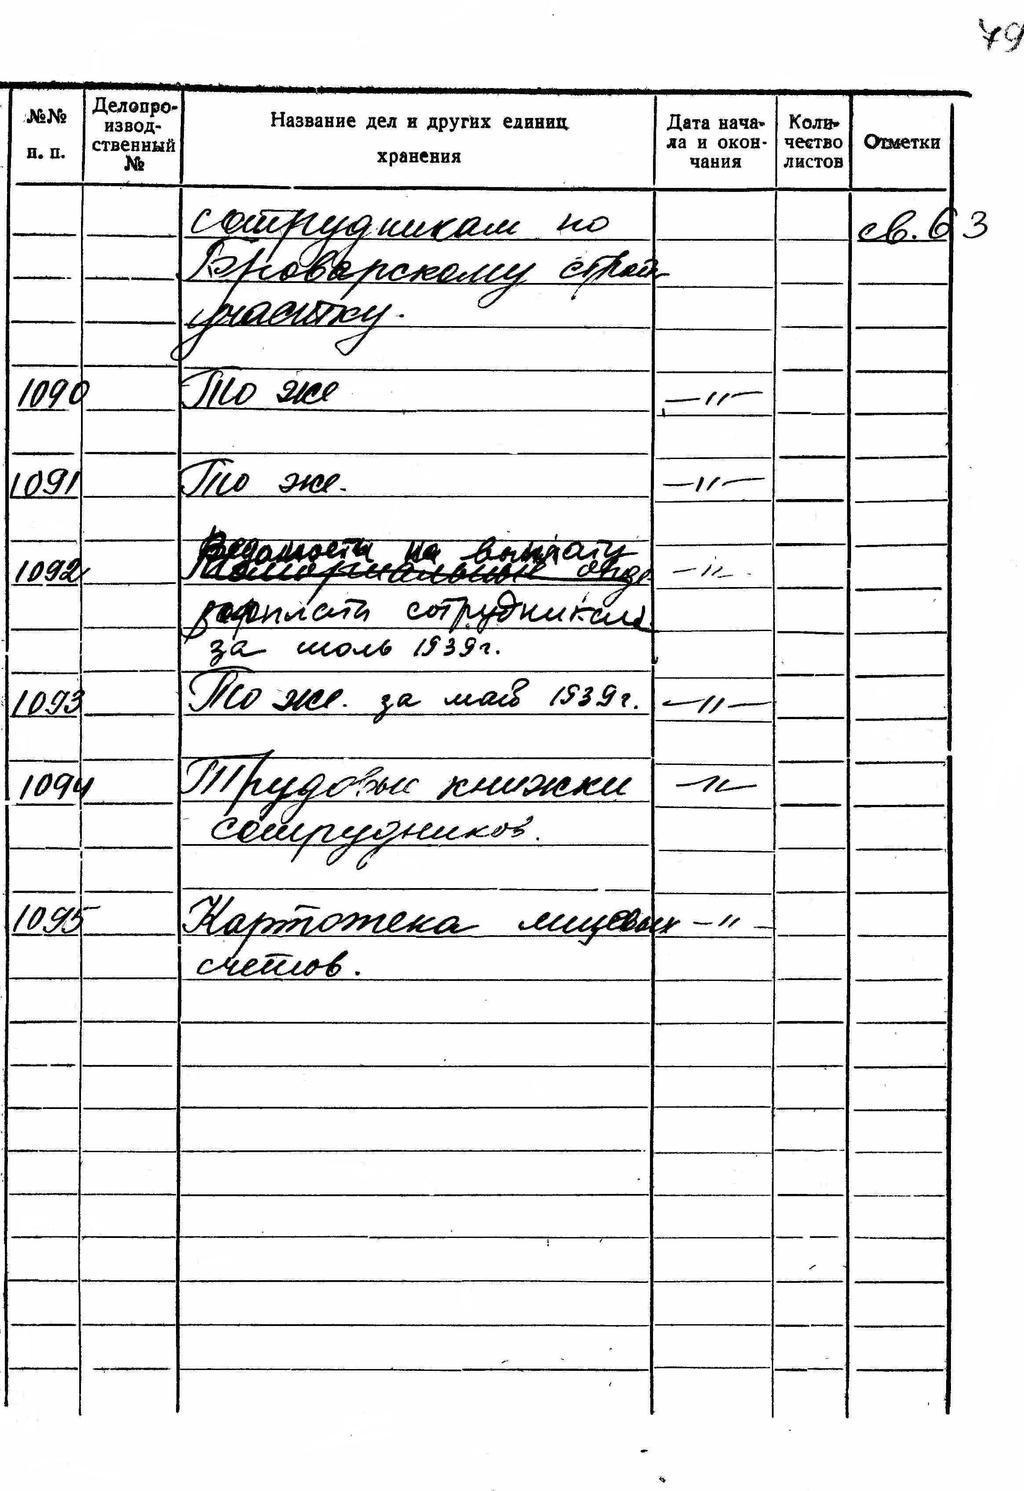 79
№№ п. п. Делопроизводственный № Название дел и других единиц хранения Дата начала и окончания Количество листов Отметки
сотрудникам по св. 63
Броварскому строй
участку.
1090 То же —"—
1091 То же. —"—
Ведомости на выплату
1092 Мемориальные орде —"—
зарплаты сотрудникам
за июль 1939г.
1093 То же. за май 1939г. —"—
1094 Трудовые книжки —"—
сотрудников.
1095 Картотека лицевых —"—
счетов.